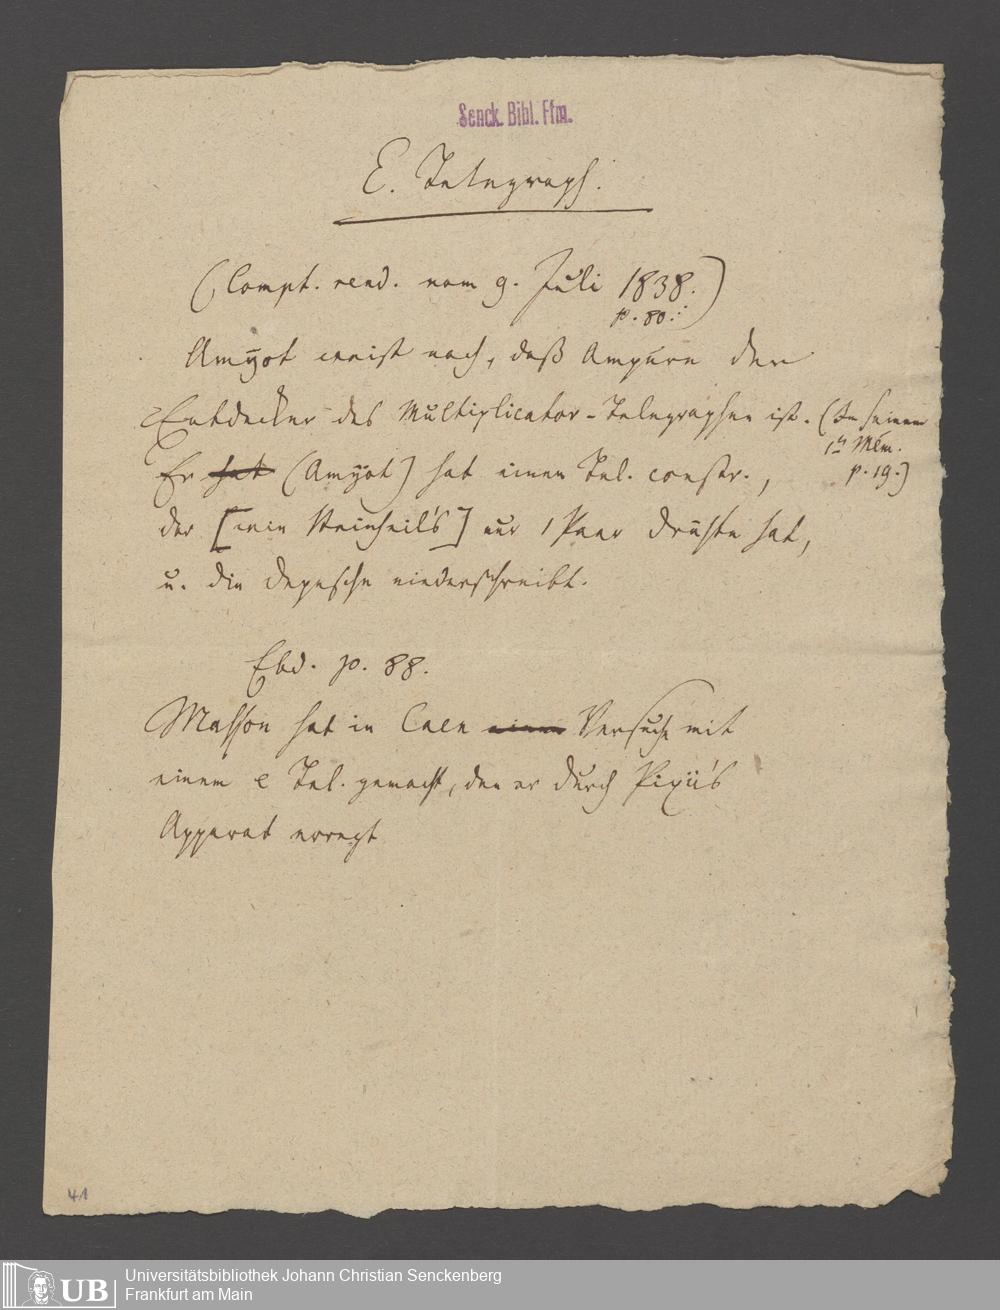 Senck. Bibl. Ffm.
E. Telegraph.
(Compt. rend. vom 9. Juli 1838.)
p. 80.
Amyot weist nach, daß Ampère der
Entdecker des Multiplicator-Telegraphen ist. (In seinem
1n Mém.
p. 19.)
Er hat (Amyot) hat einen Tel. constr.,
der [wie Steinheil's] nur 1 Paar Drähte hat,
u. die Depesche niederschreibt.
Ebd. p. 88.
Masson hat in Caen einen Versuche mit
einem e Tel. gemacht, den er durch Pixii's
Apparat erregt
41
UB
Universitätsbibliothek Johann Christian Senckenberg
Frankfurt am Main